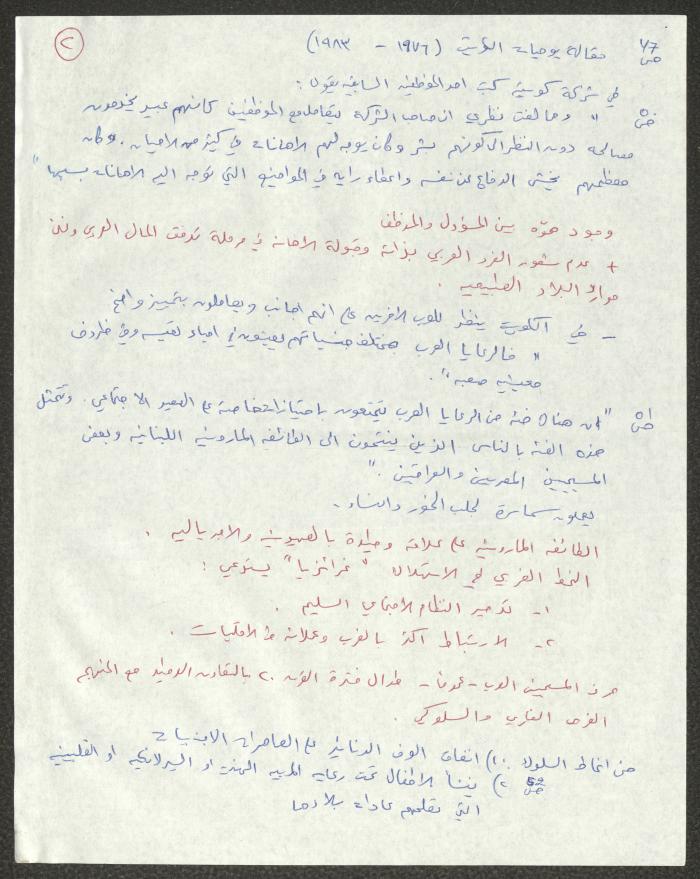 ٢
ص ٤٧ مقاله يوميات الكويت (١٩٧٦ - ١٩٨٣)
في شركة كويتية كتب احد الموظفين السابقين يقول:
ص " وما لفت نظري ان صاحب الشركة يتعامل مع الموظفين كأنهم عبيد يخدمون
مصالحه دون النظر الى كونهم بشر وكان يوجه لهم الاهانات في كثير من الاحيان. وكان
معظمهم يخشى الدفاع عن نفسه واعطاء رايه في المواضيع التي توجه اليه الاهانات بسببها "
وجود هوّه بين المسؤول والموظف
+ عدم شعور الفرد العربي بذاته وقبوله الاهانة في مرحلة تدفق المال العربي وغنى
موارد البلاد الطبيعيه .
- في الكويت ينظر للعرب الاخرين على انهم اجانب ويعاملون بتمييز واضح
" فالرعايا العرب بمختلف جنسياتهم يعيشون في احياء تعيسه وفي ظروف
معيشيه صعبه".
ص "ان هناك فئة من الرعايا العرب يتمتعون بامتيازات خاصة على الصعيد الاجتماعي. وتتمثل
هذه الفئة بالناس الذين ينتمون الى الطائفه المارونيه اللبنانيه وبعض
المسيحيين المصريين والعراقيين ."
يعملون سماسرة لجلب الخمور والنساء.
الطائفه المارونيه على علاقة وطيدة بالصهيونيه والامبرياليه .
النمط الغربي في الاستهلاك "غرائزيا" يستدعي :
١- تدمير النظام الاجتماعي السليم .
٢- الارتباط اكثر بالغرب وعلاقته مع الاقليات .
عرف المسيحيين العرب - عموماً - طوال فترة القرن ٢٠ بالتعاون الوطيد مع المنهج
الغربي الفكري والسلوكي .
من انماط السلوك ١) انفاق الوف الدنانير على العاهرات الاجنبيات
ص ٥٩ ٢) ينشأ الاطفال تحت رعايه المربيه الهنديه او السيرلانكيه او الفلبينيه
التي تعلمهم عادات بلادها